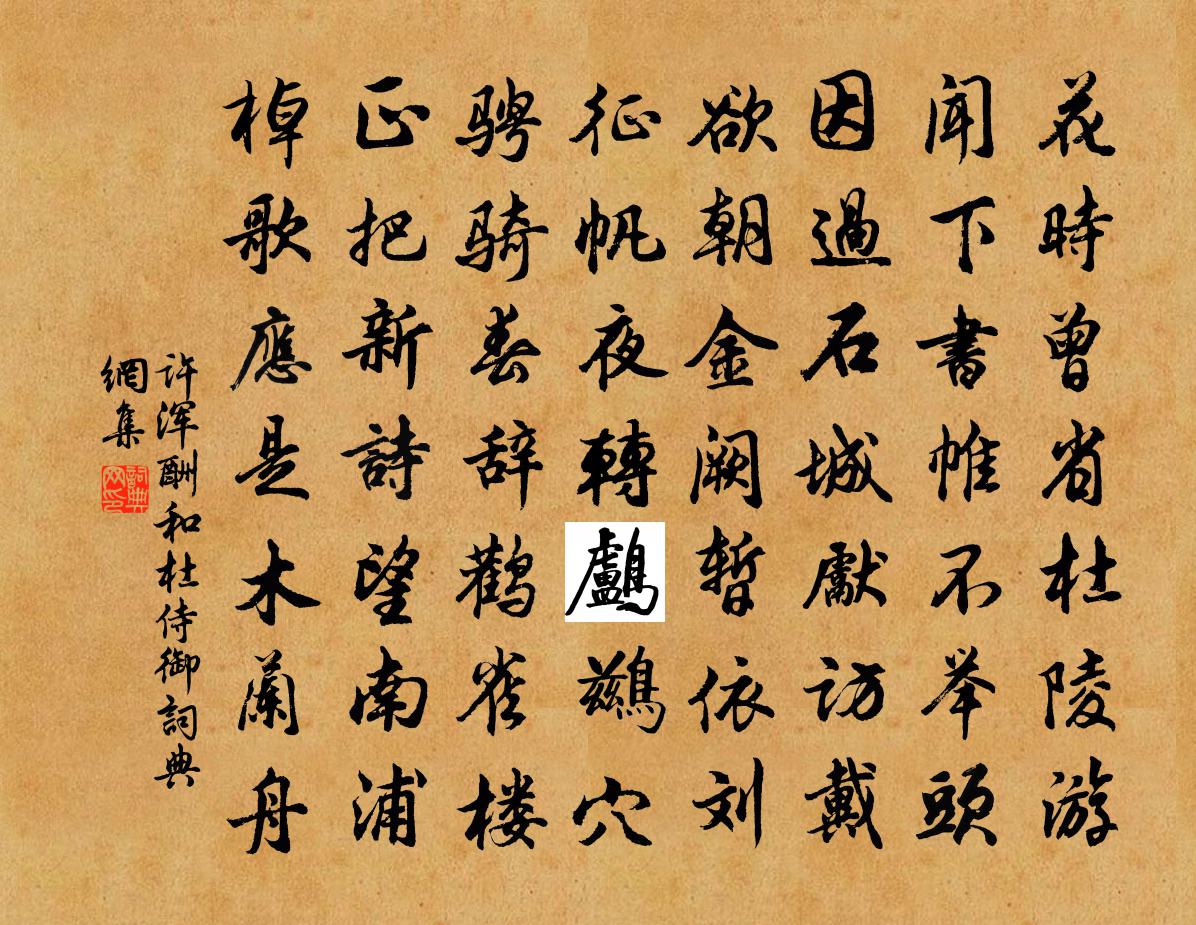 花時曾省杜陵游
聞下書帷不举頭
因過石城獻訪戴
欲朝金阙暫依刘
征帆夜轉鸕鷀穴
骋骑春辞鹳雀楼
正把新詩望南浦
棹歌應是木蘭舟
许浑酬和杜侍御詞典
網集
詞典网印